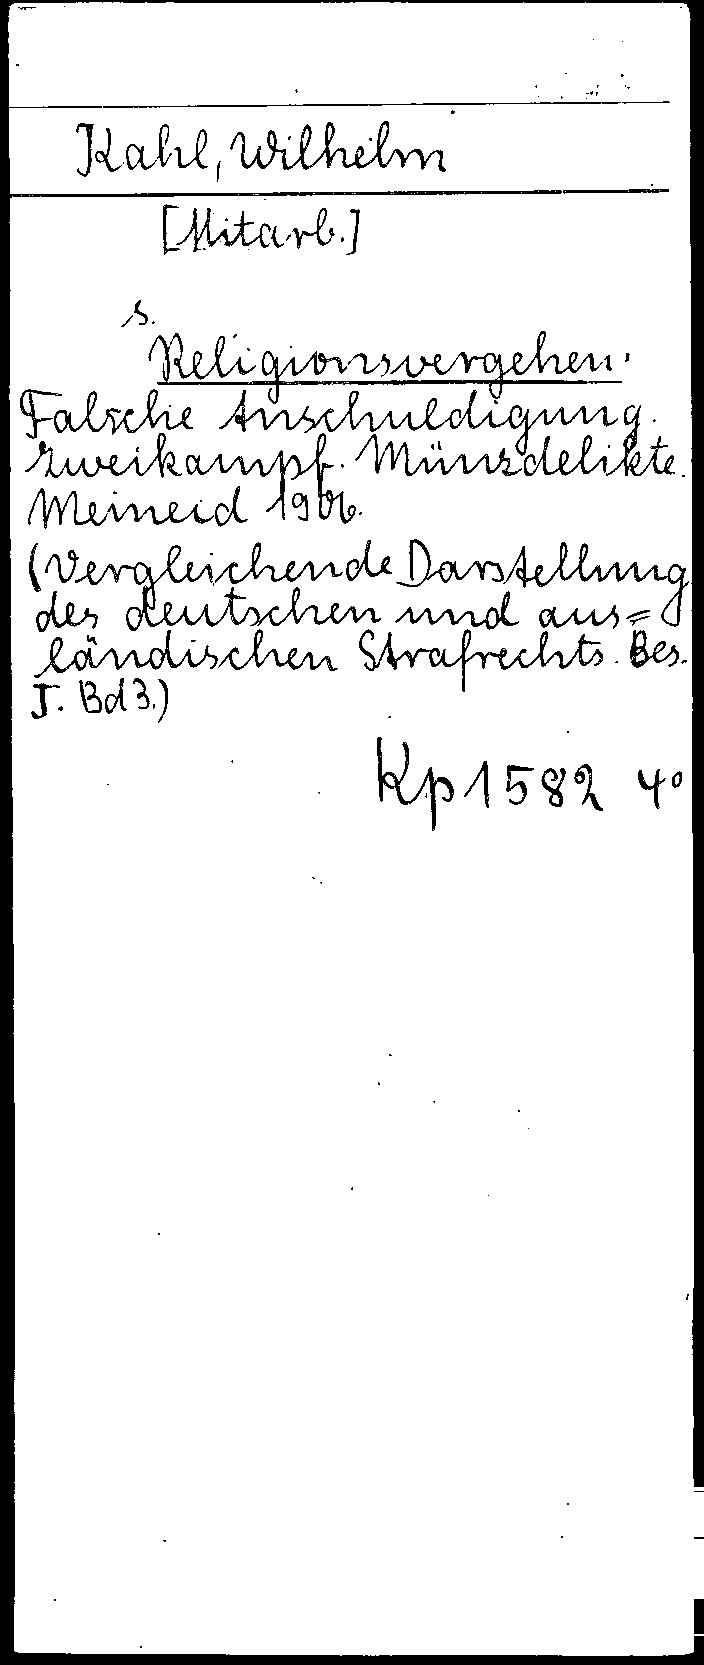 Kahl, Wilhelm
[Mitarb.]
s.
Religionsvergehen.
Falsche Anschuldigung.
Zweikampf. Münzdelikte.
Meineid 1906.
(Vergleichende Darstellung
des deutschen und aus=
ländischen Strafrechts. Bes.
T. Bd 3.)
Kp 1582 4°